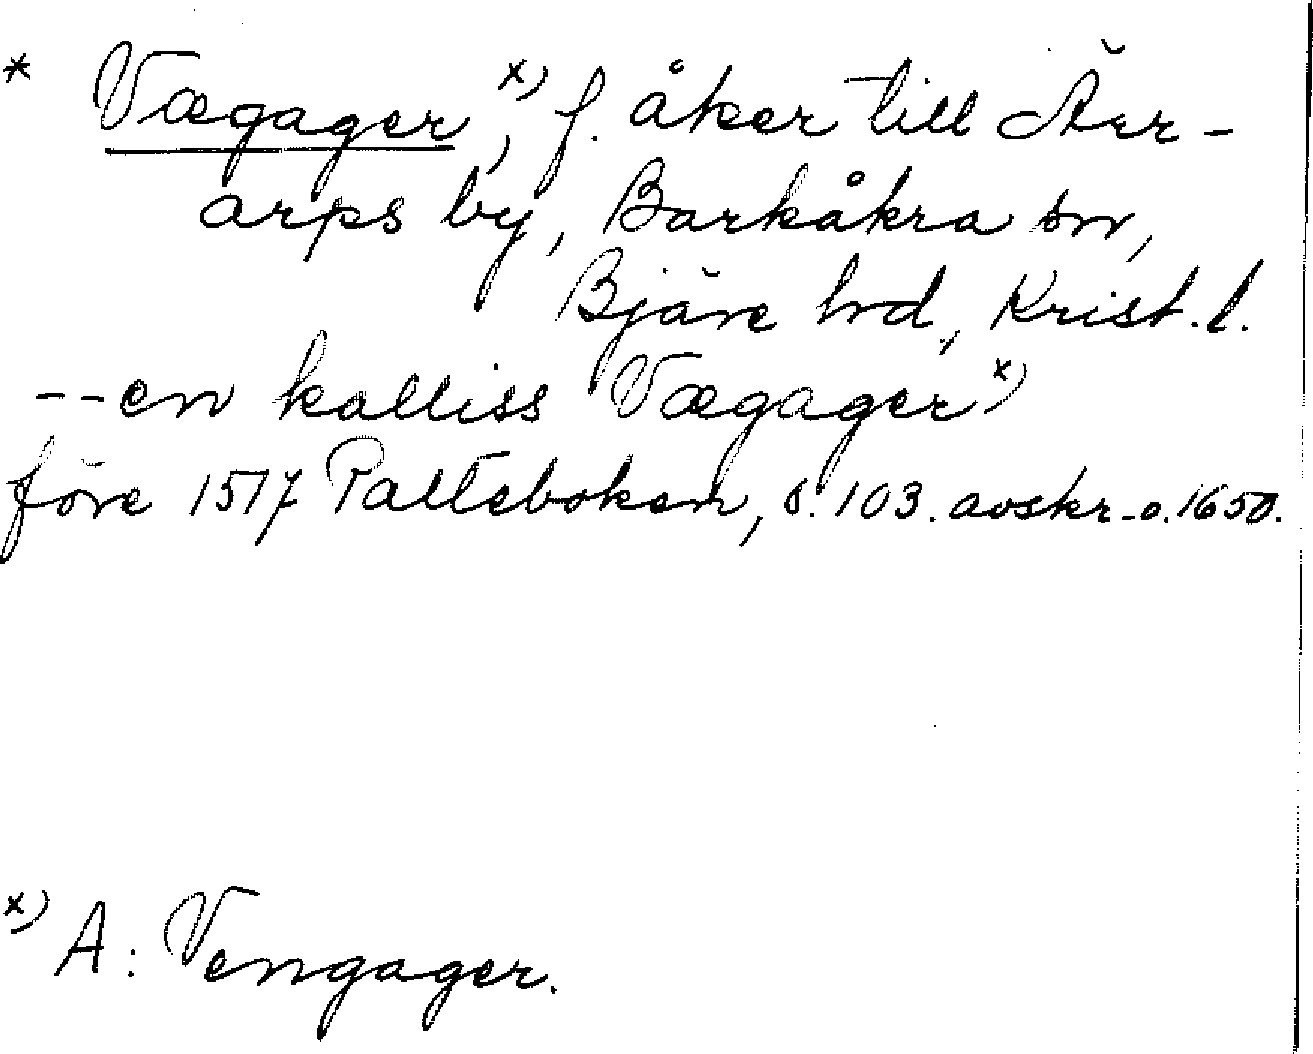 * Vægager x), f. åker till Äer-
arps by, Barkåkra sn,
Bjäre hd, Krist. l.
--en kalliss Vægager x)
före 1517 Palteboken, s. 103. avskr. o. 1650.
x) A: Vengager.